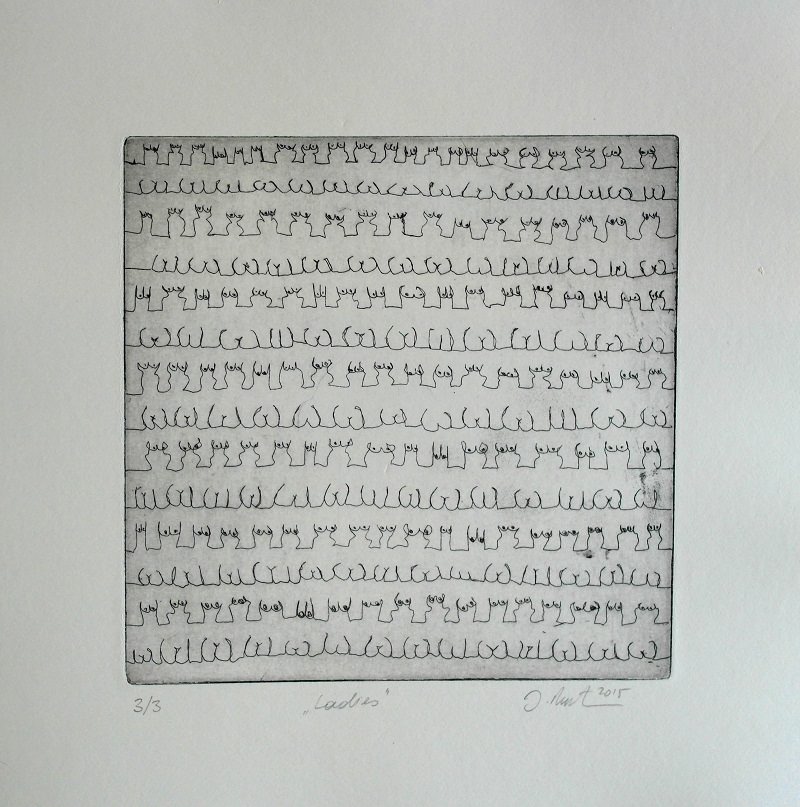 3/3 „Ladies" 2015